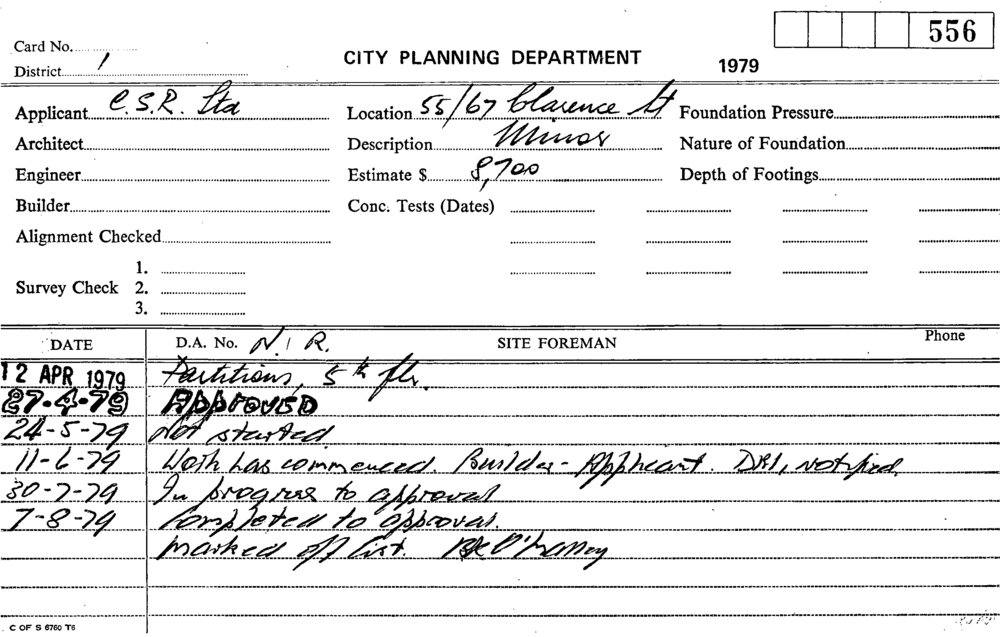 556
Card No.
CITY PLANNING DEPARTMENT
1979
District 1
Applicant C.S.R. Ltd
Location 55/67 Clarence St
Foundation Pressure
Architect
Description Minor
Nature of Foundation
Engineer
Estimate $ 8,700
Depth of Footings
Builder
Conc. Tests (Dates)
Alignment Checked
1.
Survey Check 2.
3.
DATE D.A. No. N.I.R. SITE FOREMAN Phone
12 APR 1979 Partitions, 5th flr.
27.4.79 APPROVED
24-5-79 Not started
11-6-79 Work has commenced. Builder - Applicant. notified.
30-7-79 In progress to approval
7-8-79 Completed to approval.
marked off list.
C OF S 6760 T6